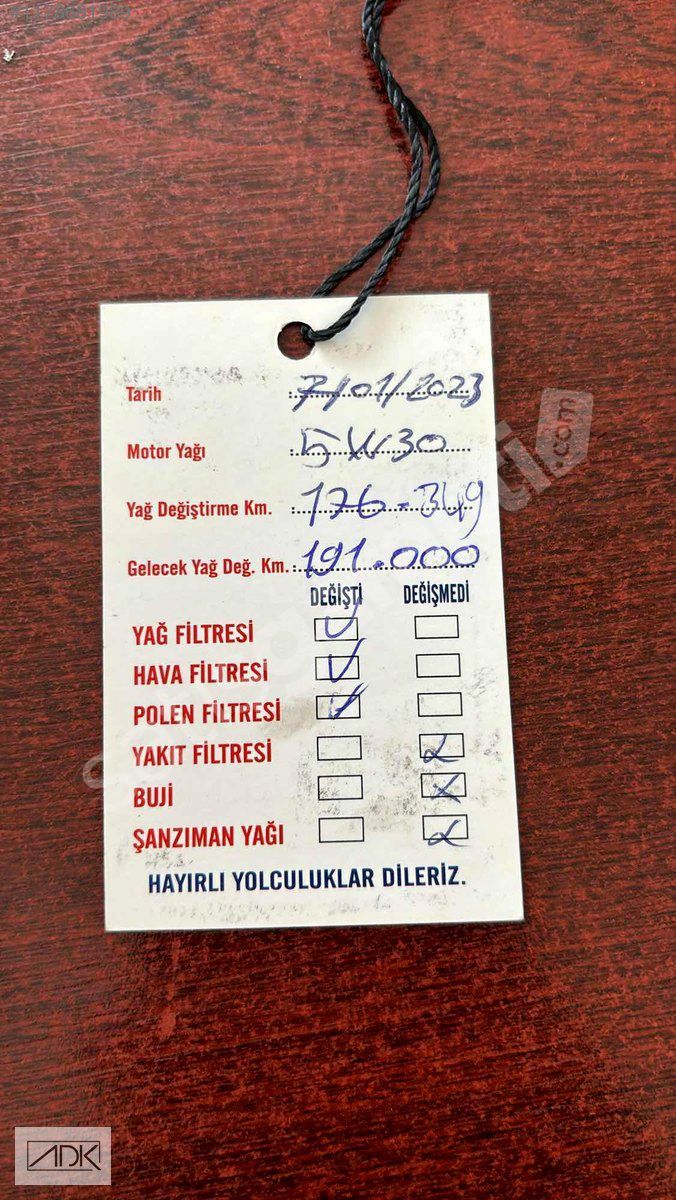 Tarih 7/01/2023
Motor Yağı 5W30
Yağ Değiştirme Km. 176.349
Gelecek Yağ Değ. Km. : 191.000
DEĞİŞTİ DEĞİŞMEDİ
YAĞ FİLTRESİ
HAVA FİLTRESİ
POLEN FİLTRESİ
YAKIT FİLTRESİ
BUJİ
ŞANZIMAN YAĞI
HAYIRLI YOLCULUKLAR DİLERİZ.
ADK